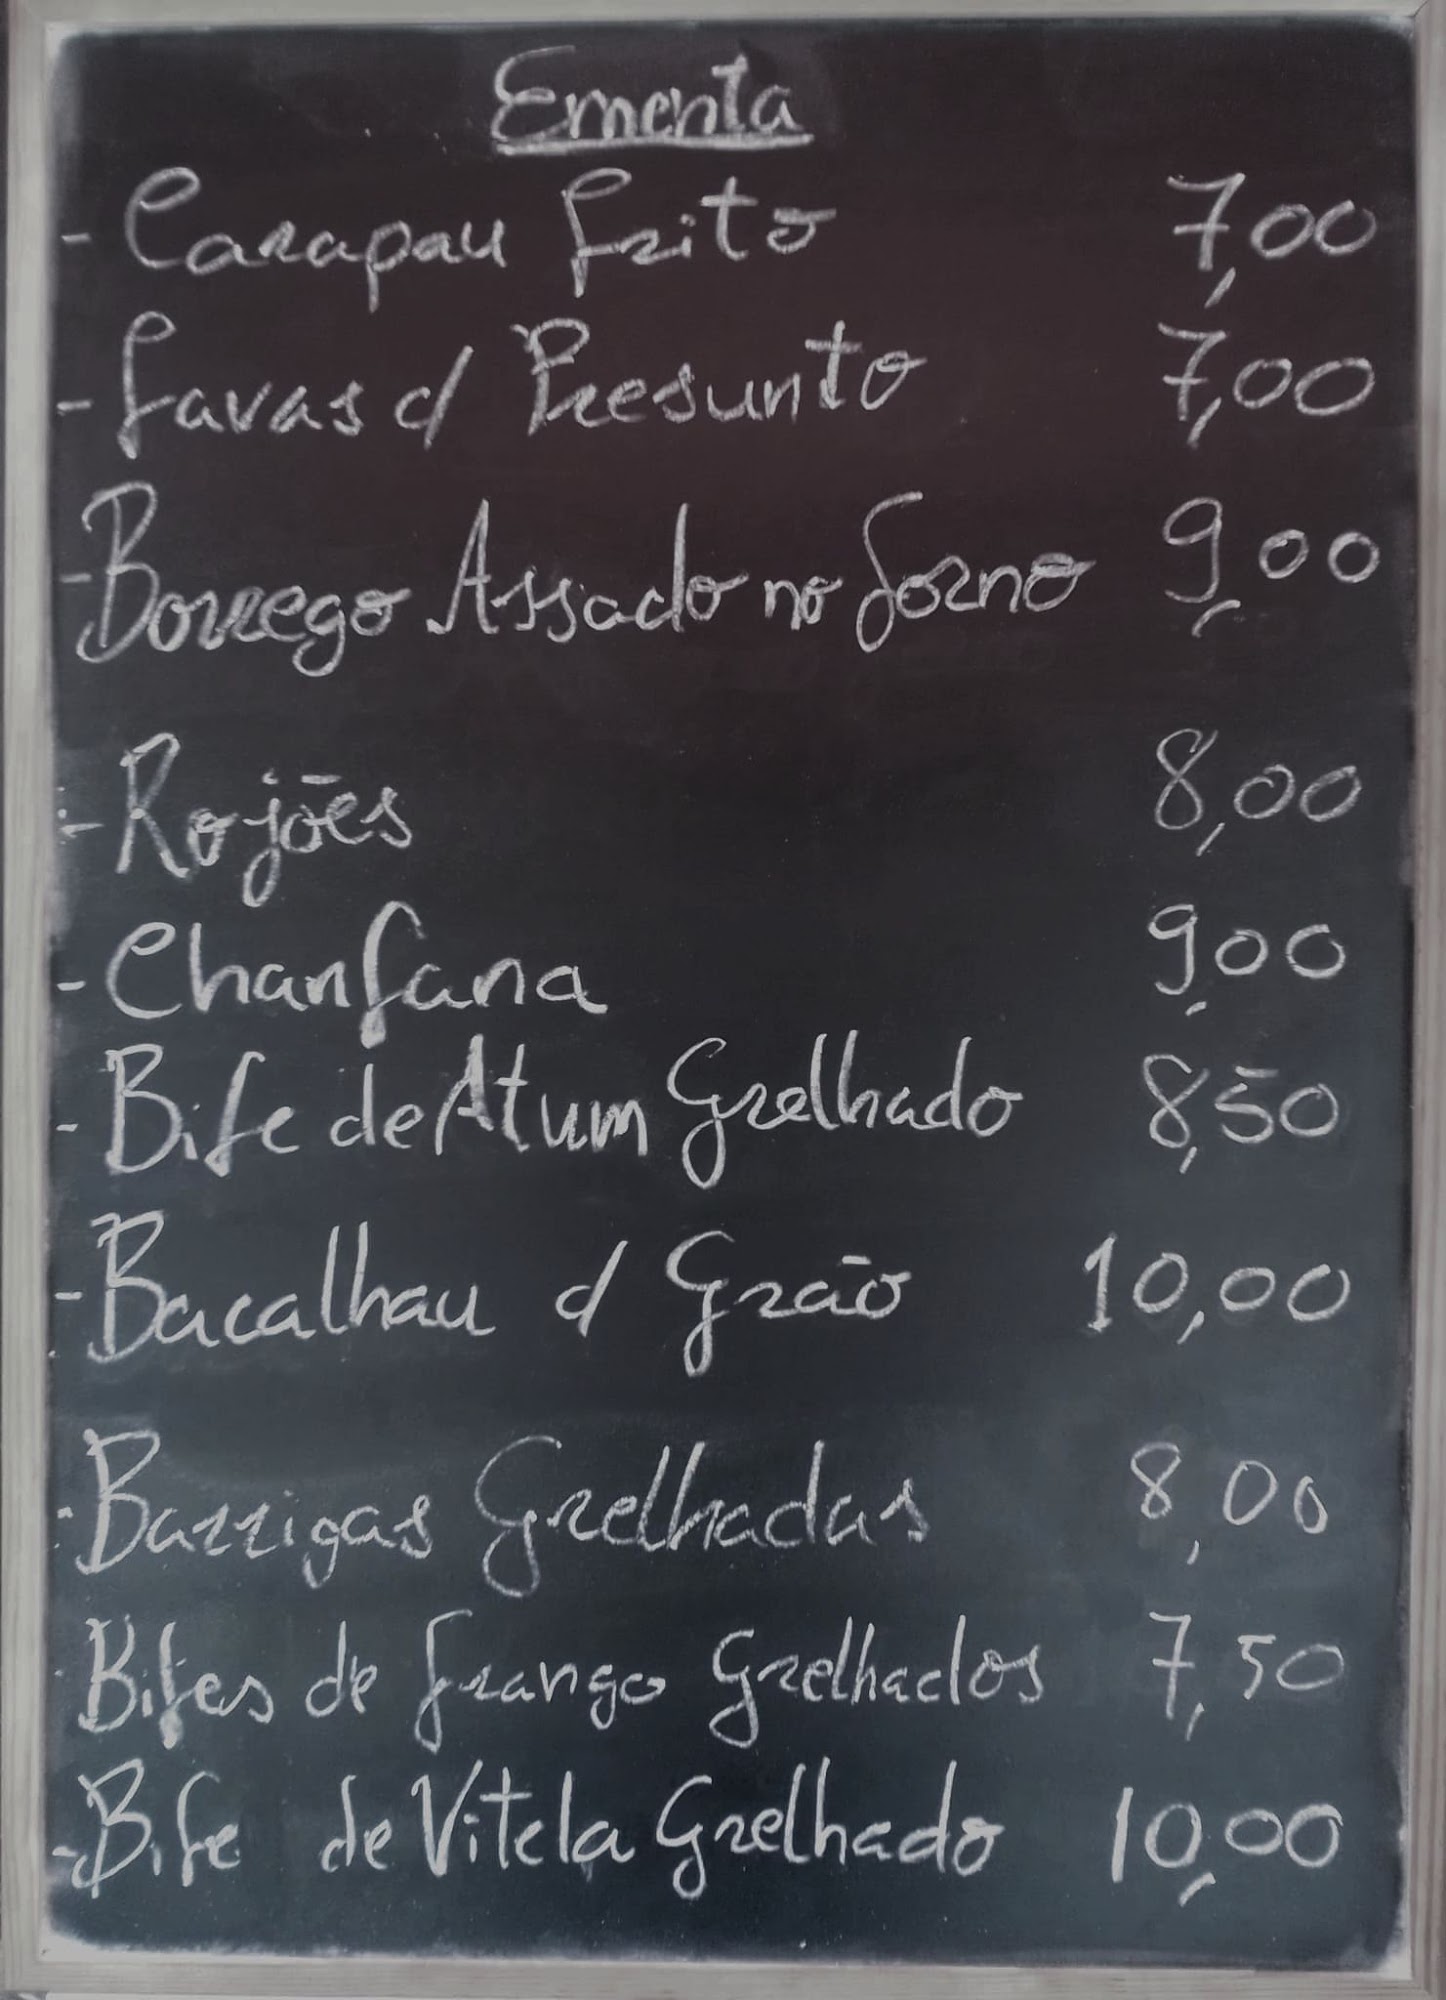 Ementa
- Carapau frito 7,00
- favas c/ Presunto 7,00
- Borrego Assado no forno 9,00
- Rojões 8,00
- Chanfana 9,00
- Bife de Atum Grelhado 8,50
- Bacalhau c/ Grão 10,00
- Barrigas Grelhadas 8,00
- Bifes de frango Grelhados 7,50
- Bife de Vitela Grelhado 10,00